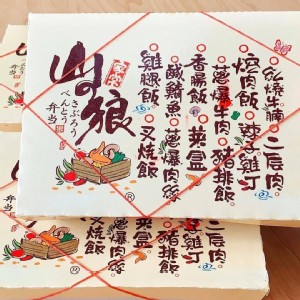 紅燒牛腩 二層肉
燒肉飯 辣子雞丁
蔥爆牛肉 豬排飯
香腸飯 英盒
鹹鯖魚 蔥爆肉絲
雞腿飯 叉燒飯
山狼
さぶろう
べんとう
弁当
®
二層肉
雞丁
豬排飯
英盒
蔥爆肉絲
叉燒飯
弁当
®